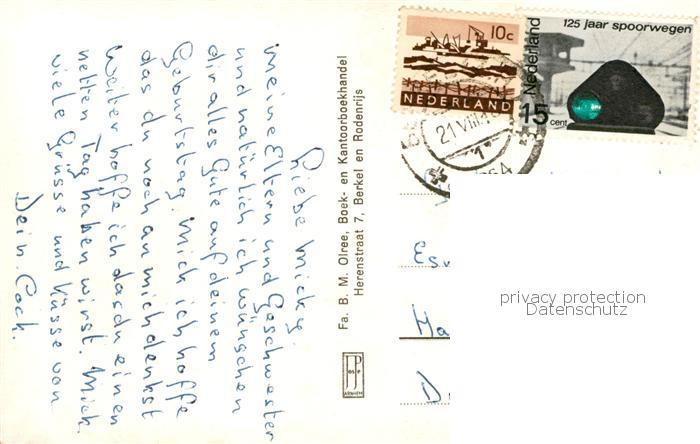 Liebe Micky.
meine Eltern und Geschwester
und natürlich ich wünschen
dir alles Gute auf deinem
Geburtstag. Mich ich hoffe
das du noch an mich denkst
Weiter hoffe ich das du einen
netten Tag haben wirst. Mick
viele Grüsse und Küsse von
Dein Cock.
Fa. B. M. Olree, Boek- en Kantoorboekhandel
Herenstraat 7, Berkel en Rodenrijs
JosPe
ARNHEM
10c
NEDERLAND
125 jaar spoorwegen
Nederland
15 cent
21 VIII
1
64
Es
Ha
D
privacy protection
Datenschutz